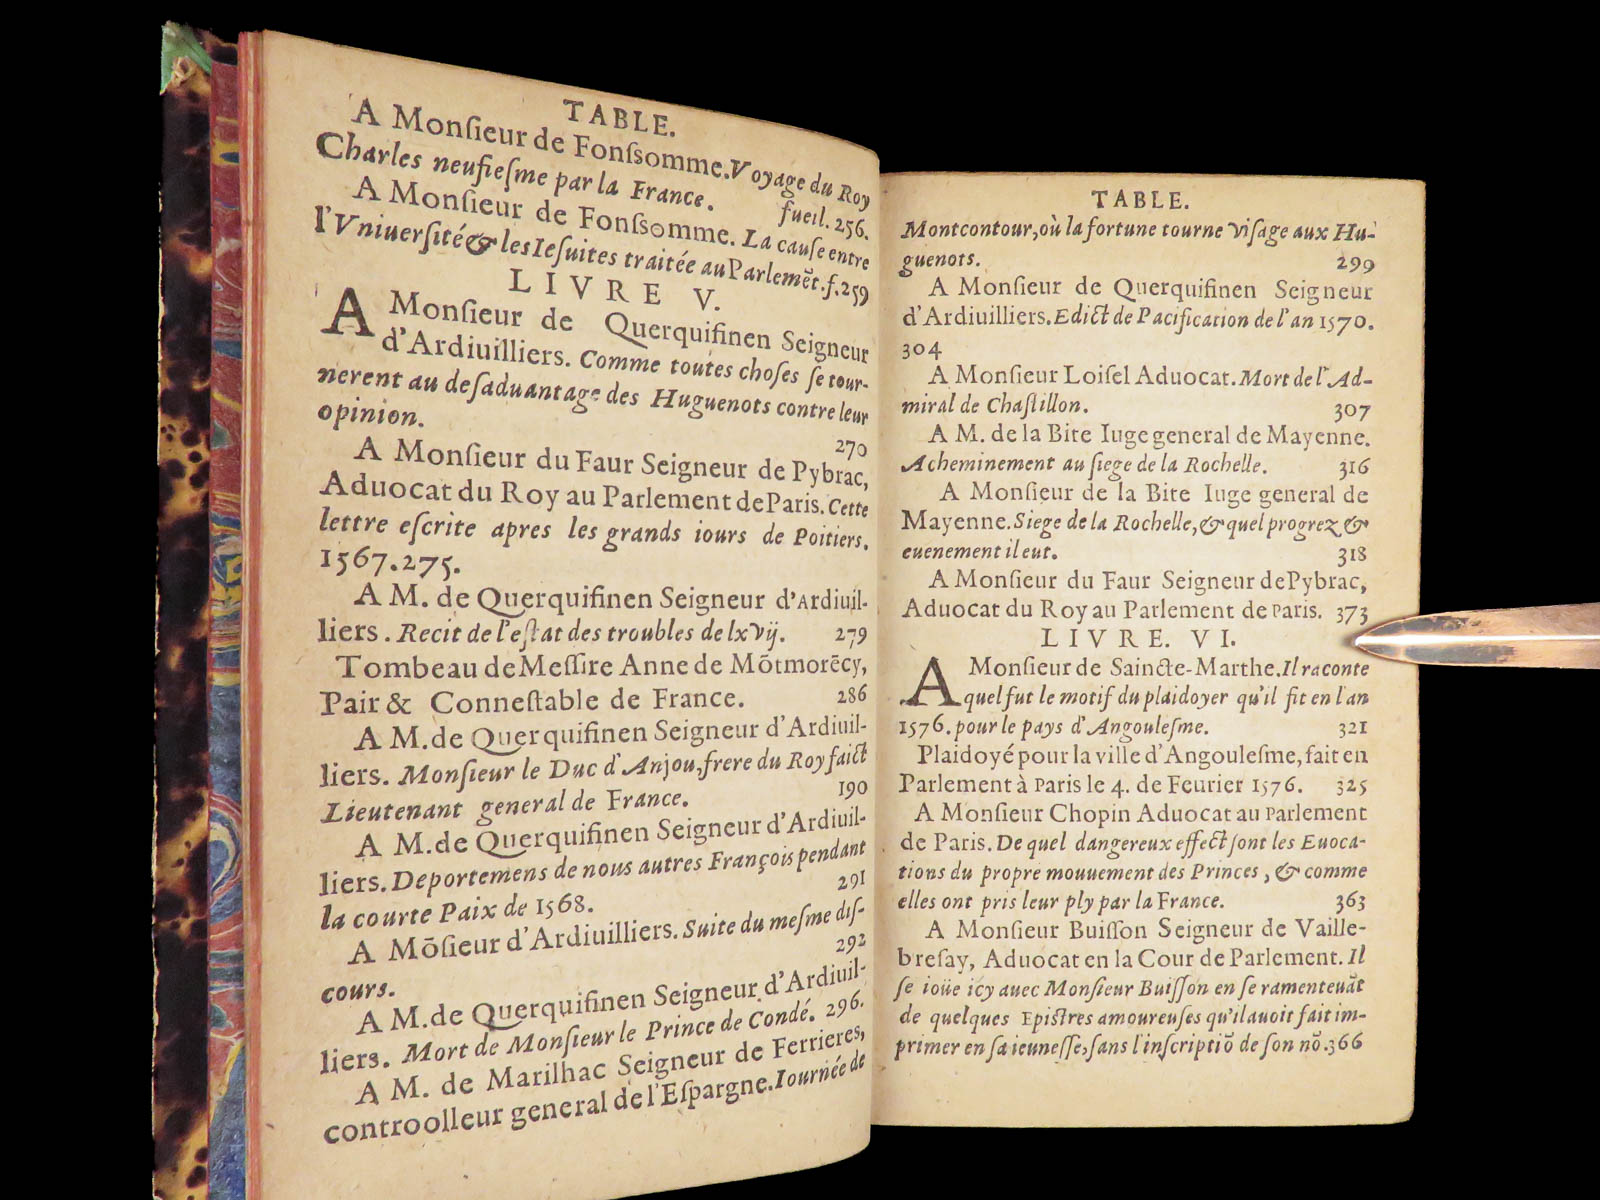 TABLE.
A Monſieur de Fonſsomme. Voyage du Roy
Charles neufieſme par la France. fueil. 256.
A Monſieur de Fonſsomme. La cauſe entre
l'Vniuerſité & les Ieſuites traitée au Parlemẽt. f. 259
LIVRE V.
A Monſieur de Querquifinen Seigneur
d'Ardiuilliers. Comme toutes choſes ſe tour-
nerent au deſaduantage des Huguenots contre leur
opinion. 270
A Monſieur du Faur Seigneur de Pybrac,
Aduocat du Roy au Parlement de Paris. Cette
lettre eſcrite apres les grands iours de Poitiers.
1567. 275.
A M. de Querquifinen Seigneur d'Ardiuil-
liers. Recit de l'eſtat des troubles de lxvij. 279
Tombeau de Meſſire Anne de Mõtmorẽcy,
Pair & Conneſtable de France. 286
A M. de Querquifinen Seigneur d'Ardiuil-
liers. Monſieur le Duc d'Anjou, frere du Roy faict
Lieutenant general de France. 190
A M. de Querquifinen Seigneur d'Ardiuil-
liers. Deportemens de nous autres François pendant
la courte Paix de 1568. 291
A Mõſieur d'Ardiuilliers. Suite du meſme diſ-
cours. 292
A M. de Querquifinen Seigneur d'Ardiuil-
liers. Mort de Monſieur le Prince de Condé. 296.
A M. de Marilhac Seigneur de Ferrieres,
controolleur general de l'Eſpargne. Iournée de
TABLE.
Montcontour, où la fortune tourne viſage aux Hu-
guenots. 299
A Monſieur de Querquifinen Seigneur
d'Ardiuilliers. Edict de Pacification de l'an 1570.
304
A Monſieur Loiſel Aduocat. Mort de l'Ad-
miral de Chaſtillon. 307
A M. de la Bite Iuge general de Mayenne.
Acheminement au ſiege de la Rochelle. 316
A Monſieur de la Bite Iuge general de
Mayenne. Siege de la Rochelle, & quel progrez &
euenement il eut. 318
A Monſieur du Faur Seigneur de Pybrac,
Aduocat du Roy au Parlement de Paris. 373
LIVRE. VI.
A Monſieur de Saincte-Marthe. Il raconte
quel fut le motif du plaidoyer qu'il fit en l'an
1576. pour le pays d'Angouleſme. 321
Plaidoyé pour la ville d'Angouleſme, fait en
Parlement à Paris le 4. de Feurier 1576. 325
A Monſieur Chopin Aduocat au Parlement
de Paris. De quel dangereux effect ſont les Euoca-
tions du propre mouuement des Princes, & comme
elles ont pris leur ply par la France. 363
A Monſieur Buiſſon Seigneur de Vaille-
breſay, Aduocat en la Cour de Parlement. Il
ſe ioüe icy auec Monſieur Buiſſon en ſe ramenteuãt
de quelques Epiſtres amoureuſes qu'il auoit fait im-
primer en ſa ieuneſſe, ſans l'inſcriptiõ de ſon nõ. 366